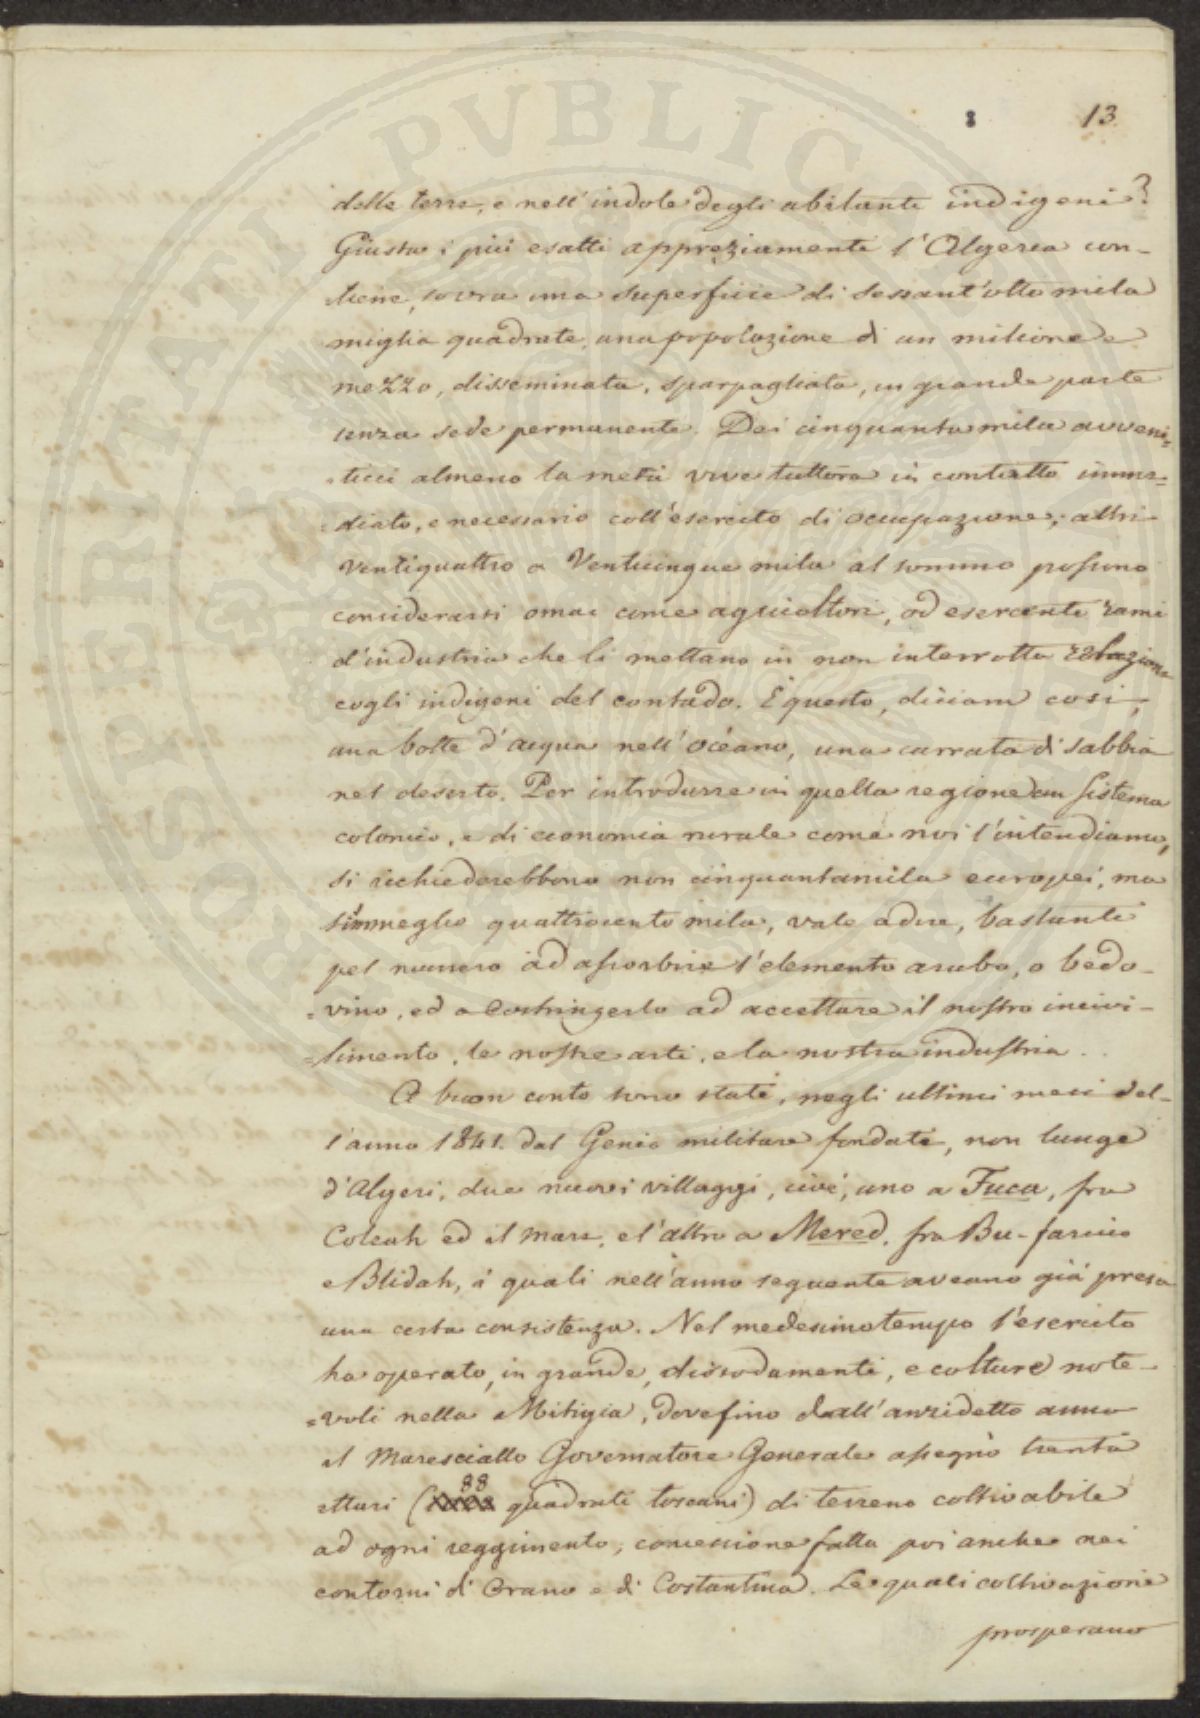 PROSPERITATI PVBLICAE AVGENDAE
8 13
delle terre, e nell'indole degli abitanti indigeni?
Giusta i più esatti apprezziamenti l'Algeria con-
tiene, sovra una superficie di sessant'otto mila
miglia quadrate, una popolazione di un milione e
mezzo, disseminata, sparpagliata, in grande parte
senza sede permanente. Dei cinquanta mila avveni=
=ticci almeno la metà vive tuttora in contatto imme=
=diato, e necessario coll'esercito di occupazione; altri
ventiquattro o venticinque mila al sommo possono
considerarsi omai come agricoltori, od esercenti rami
d'industria che li mettano in non interrotta relazione
cogli indigeni del contado. È questo, diciam così,
una botte d'acqua nell'océano, una carrata di sabbia
nel deserto. Per introdurre in quella regione un sistema
colonico, e di economia rurale come noi l'intendiamo,
si richiederebbono non cinquantamila europei, ma
simmeglio quattrocento mila, vale a dire, bastanti
pel numero ad assorbire l'elemento arabo, o bedo-
=vino, ed a costringerlo ad accettare il nostro incivi-
=limento, le nostre arti, e la nostra industria.
A buon conto sono stati, negli ultimi mesi del-
l'anno 1841. dal Genio militare fondati, non lunge
d'Algeri, due nuovi villaggi, cioè, uno a Fuca, fra
Coleah ed il mare, e l'altro a Mered, fra Bu-farico
e Blidah, i quali nell'anno seguente aveano già presa
una certa consistenza. Nel medesimo tempo l'esercito
ha operato, in grande, dissodamenti, e colture note-
=voli nella Mitigia, dove fino dall'anzidetto anno
il Maresciallo Governatore Generale assegnò trenta
ettari (88 quadrati toscani) di terreno coltivabile
ad ogni reggimento, concessione fatta poi anche nei
contorni di Orano e di Costantina. Le quali coltivazioni
prosperano